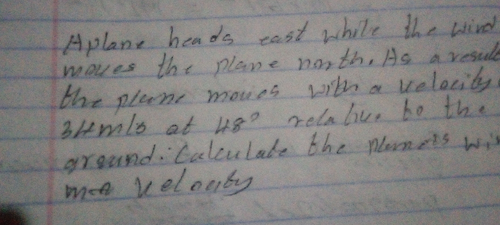 A plane heads east while the wind
moves the plane north. As a result
the plane moves with a velocity
34m/s at 48° relative to the
ground. Calculate the
velocity